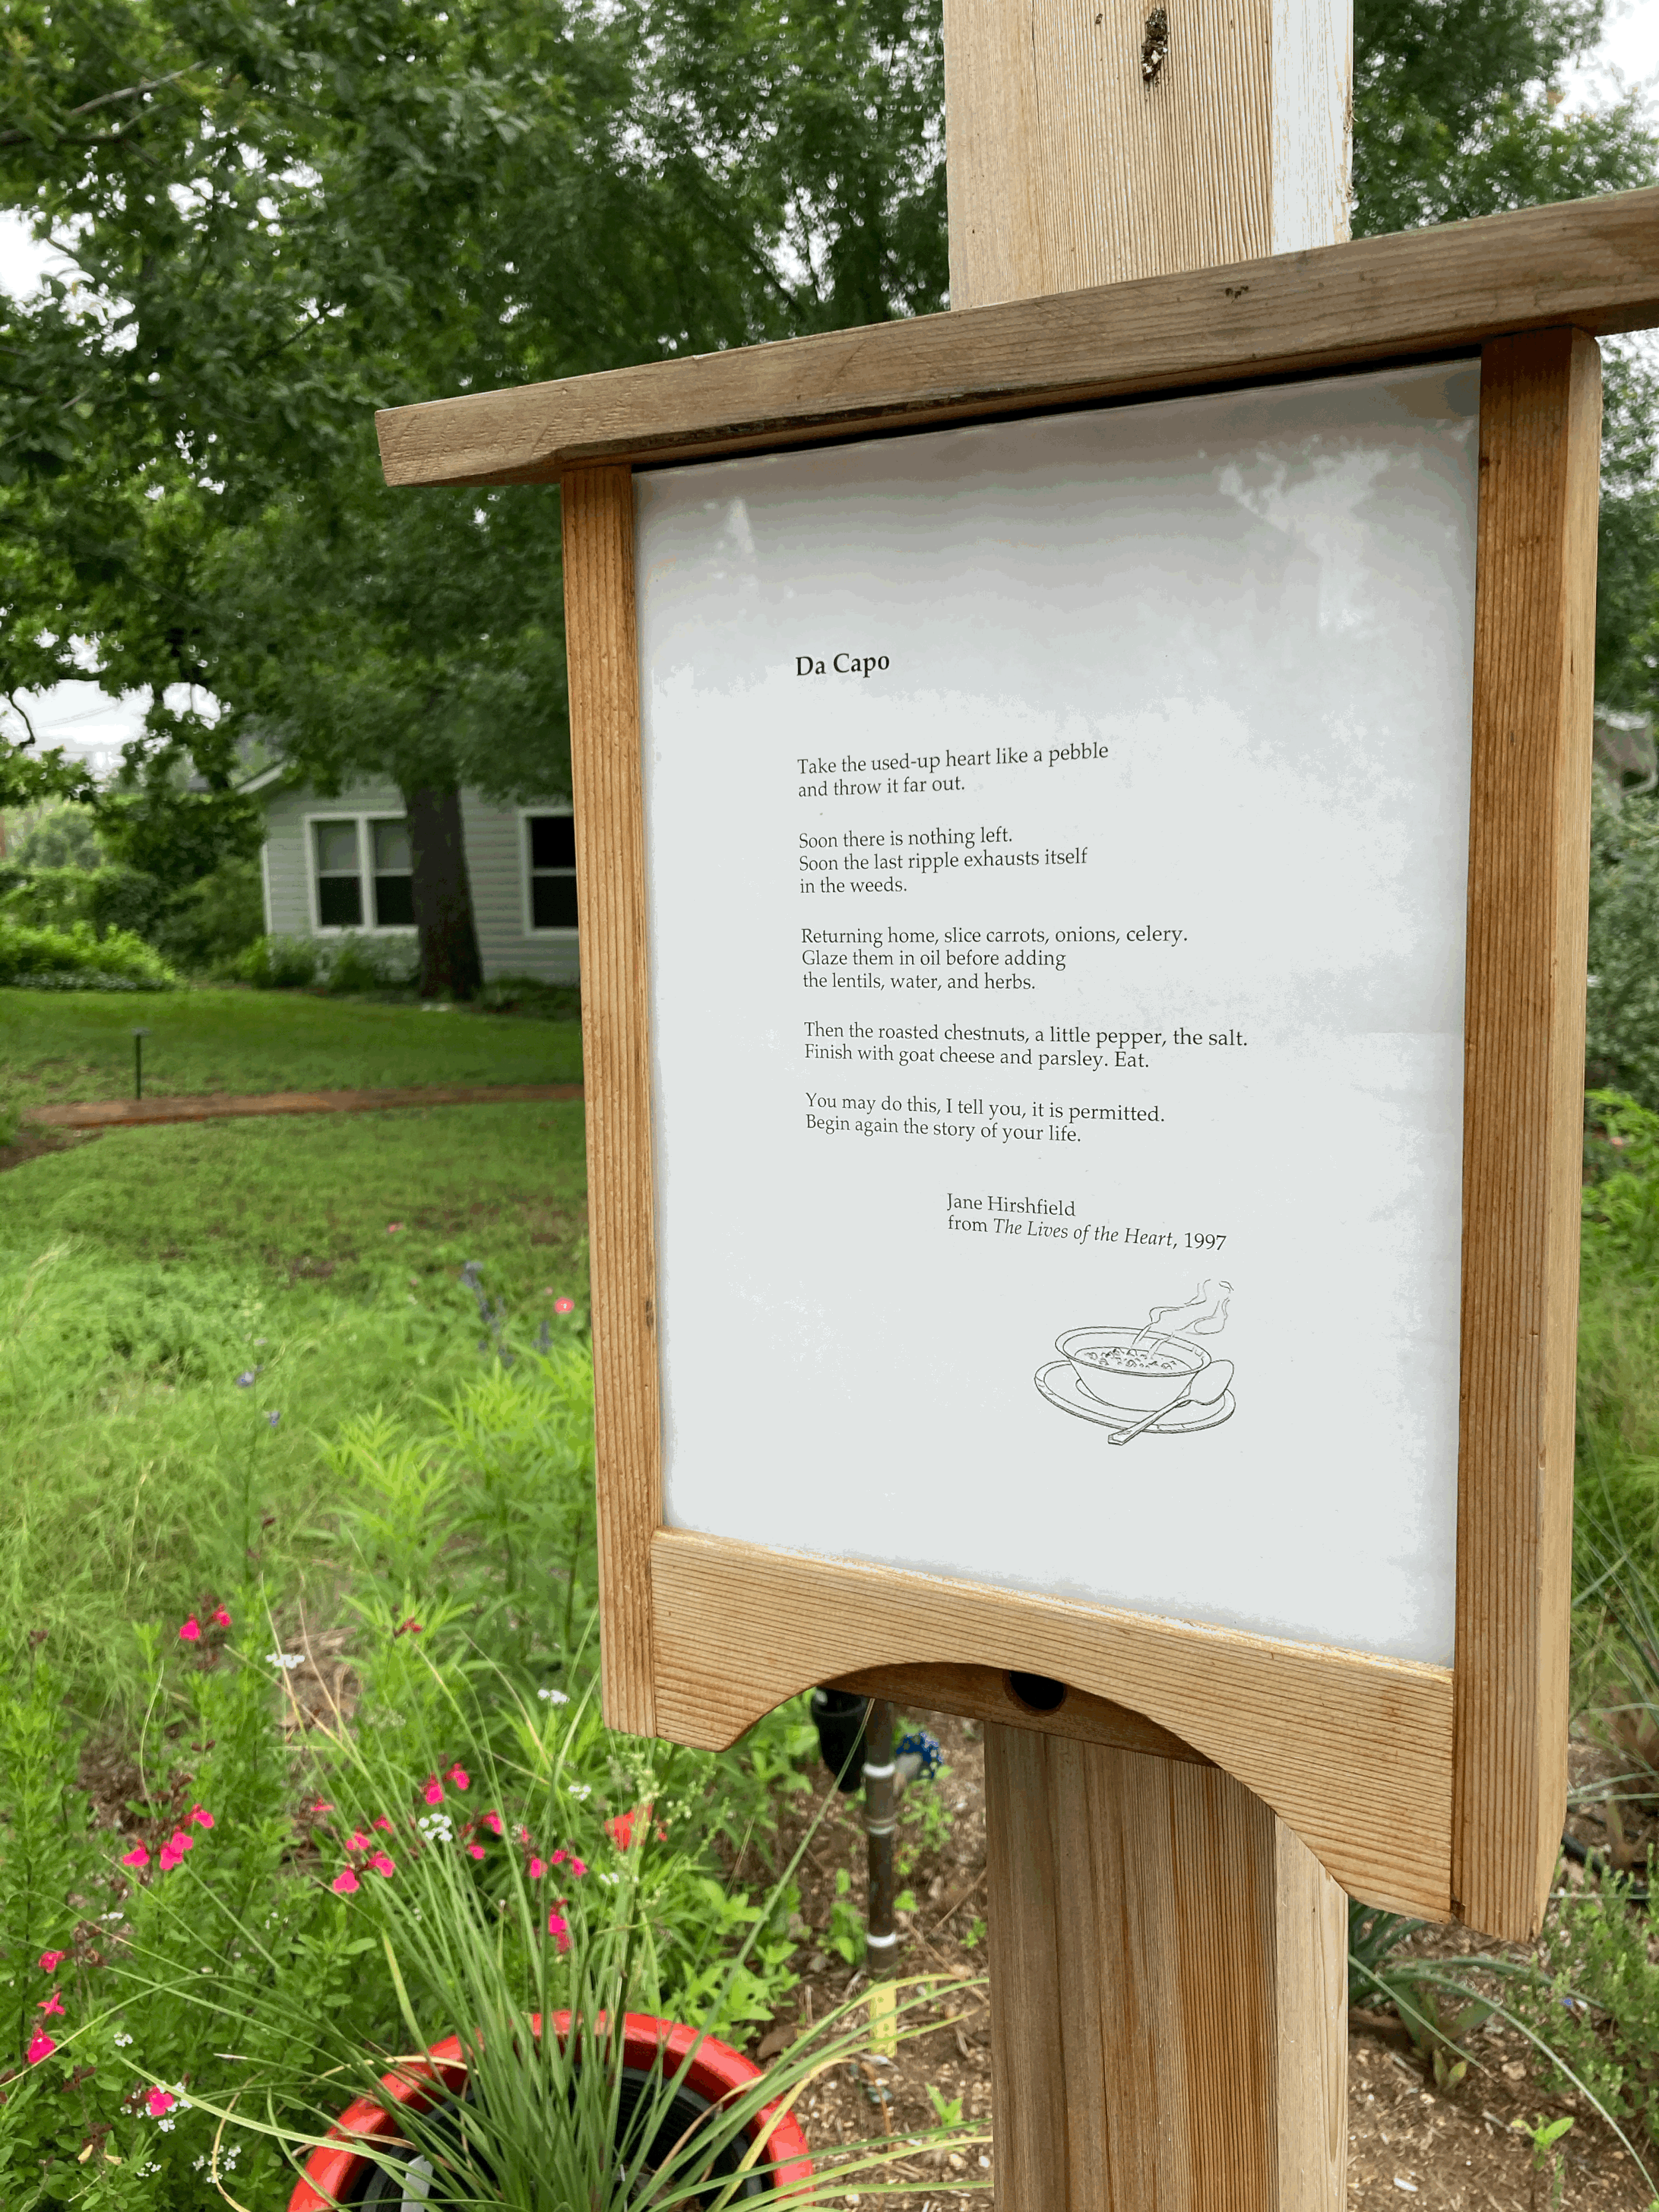 Da Capo
Take the used-up heart like a pebble
and throw it far out.
Soon there is nothing left.
Soon the last ripple exhausts itself
in the weeds.
Returning home, slice carrots, onions, celery.
Glaze them in oil before adding
the lentils, water, and herbs.
Then the roasted chestnuts, a little pepper, the salt.
Finish with goat cheese and parsley. Eat.
You may do this, I tell you, it is permitted.
Begin again the story of your life.
Jane Hirshfield
from The Lives of the Heart, 1997